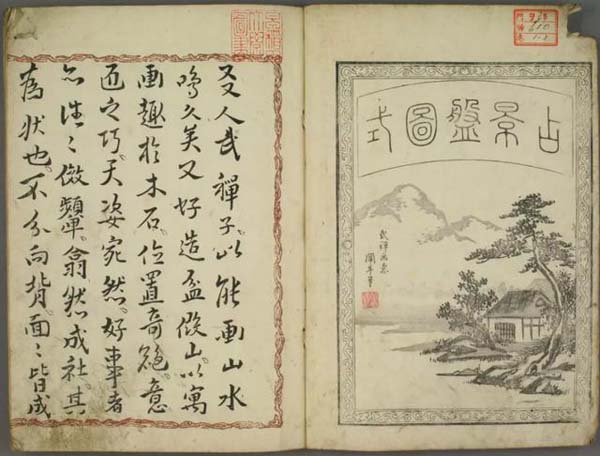 占景盤圖式
武禅画意
友人武禪子。以能画山水
鳴久矣又好造盆假山。以寓
画趣於木石。位置奇絶。意
匠之巧。天姿宛然。好事者
亦往々傚顰。翕然成社。其
為状也。不分向背。面々皆成